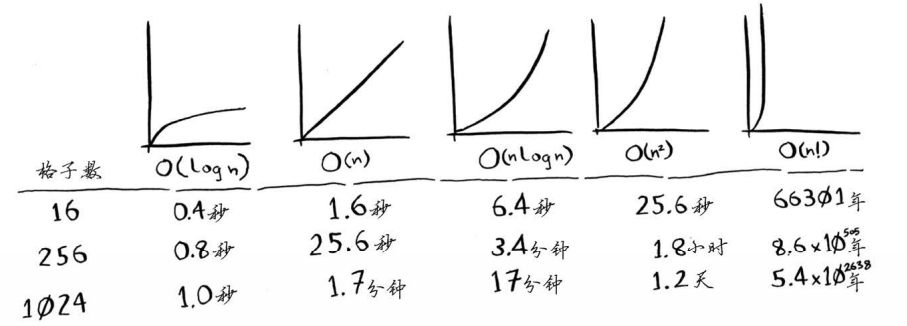 格子数 O(log n) O(n) O(n log n) O(n²) O(n!)
16 0.4秒 1.6秒 6.4秒 25.6秒 66301年
256 0.8秒 25.6秒 3.4分钟 1.8小时 8.6x10⁵⁰⁵年
1024 1.0秒 1.7分钟 17分钟 1.2天 5.4x10²⁶³⁸年